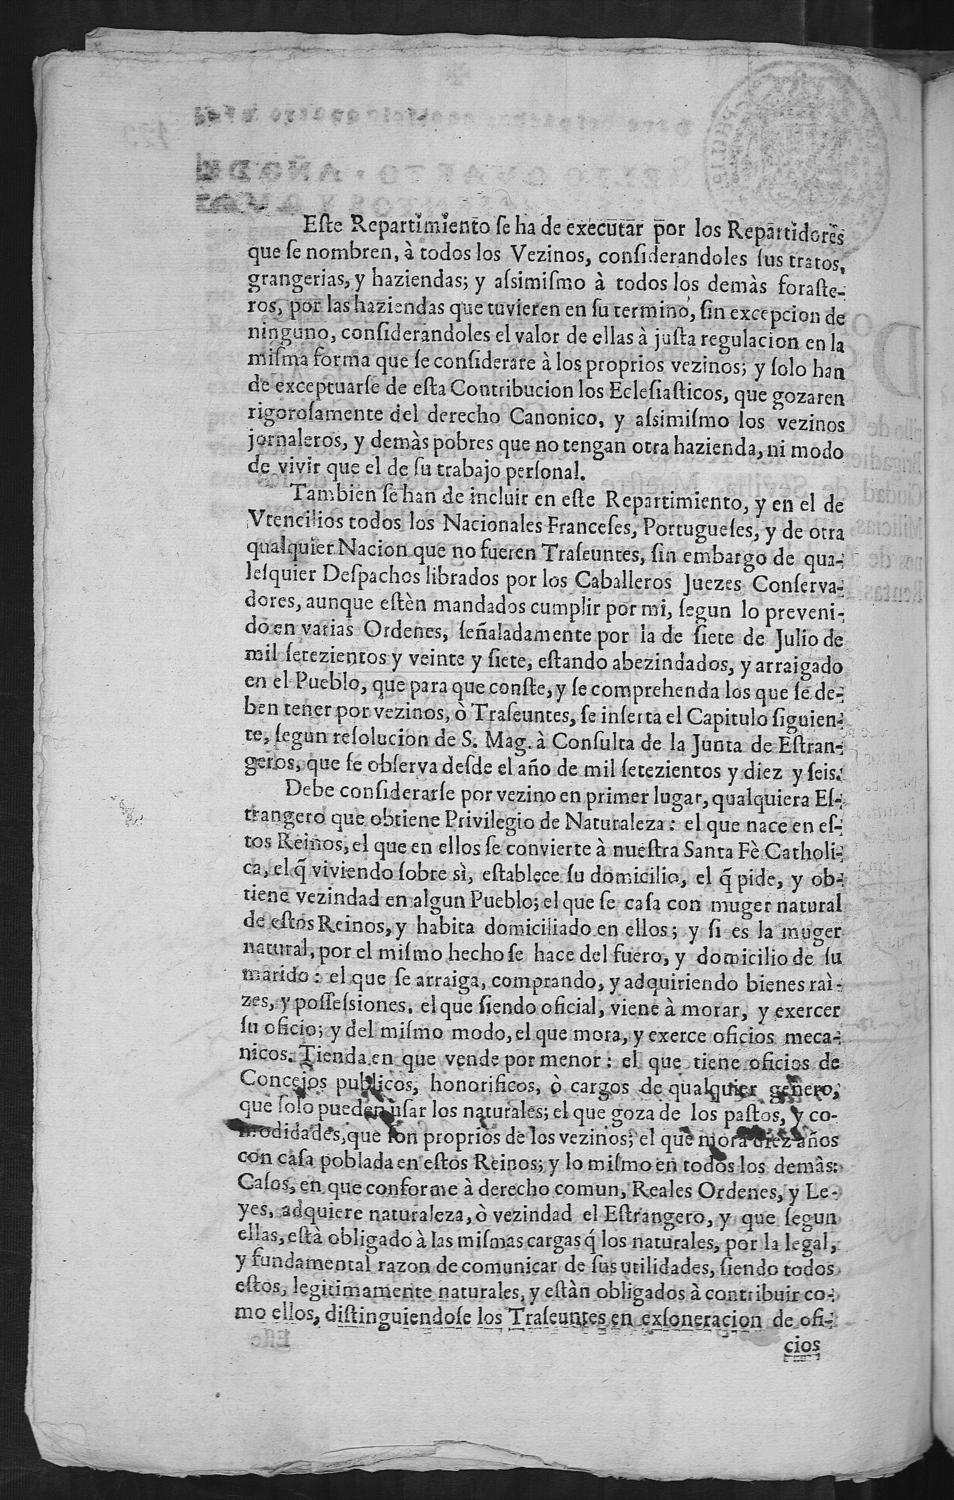 Este Repartimiento ſe ha de executar por los Repartidores
que ſe nombren, à todos los Vezinos, conſiderandoles ſus tratos,
grangerias, y haziendas; y aſsimiſmo à todos los demàs foraſte-
ros, por las haziendas que tuvieren en ſu termino, ſin excepcion de
ninguno, conſiderandoles el valor de ellas à juſta regulacion en la
miſma forma que ſe conſiderare à los proprios vezinos; y ſolo han
de exceptuarſe de eſta Contribucion los Ecleſiaſticos, que gozaren
rigoroſamente del derecho Canonico, y aſsimiſmo los vezinos
jornaleros, y demàs pobres que no tengan otra hazienda, ni modo
de vivir que el de ſu trabajo perſonal.
Tambien ſe han de incluir en eſte Repartimiento, y en el de
Vtencilios todos los Nacionales Franceſes, Portugueſes, y de otra
qualquier Nacion que no fueren Traſeuntes, ſin embargo de qua-
leſquier Deſpachos librados por los Caballeros Juezes Conſerva-
dores, aunque eſtèn mandados cumplir por mi, ſegun lo preveni-
do en varias Ordenes, ſeñaladamente por la de ſiete de Julio de
mil ſetezientos y veinte y ſiete, eſtando abezindados, y arraigado
en el Pueblo, que para que conſte, y ſe comprehenda los que ſe de-
ben tener por vezinos, ò Traſeuntes, ſe inſerta el Capitulo ſiguien-
te, ſegun reſolucion de S. Mag. à Conſulta de la Junta de Eſtran-
geros, que ſe obſerva deſde el año de mil ſetezientos y diez y ſeis.
Debe conſiderarſe por vezino en primer lugar, qualquiera Eſ-
trangero que obtiene Privilegio de Naturaleza: el que nace en eſ-
tos Reinos, el que en ellos ſe convierte à nueſtra Santa Fè Catholi-
ca, el q̃ viviendo ſobre sì, eſtablece ſu domicilio, el q̃ pide, y ob-
tiene vezindad en algun Pueblo; el que ſe caſa con muger natural
de eſtos Reinos, y habita domiciliado en ellos; y ſi es la muger
natural, por el miſmo hecho ſe hace del fuero, y domicilio de ſu
marido: el que ſe arraiga, comprando, y adquiriendo bienes raì-
zes, y poſſeſsiones, el que ſiendo oficial, viene à morar, y exercer
ſu oficio; y del miſmo modo, el que mora, y exerce oficios meca-
nicos. Tienda en que vende por menor: el que tiene oficios de
Concejos publicos, honorificos, ò cargos de qualquier genero,
que ſolo pueden uſar los naturales; el que goza de los paſtos, y co-
modidades, que ſon proprios de los vezinos; el que mora diez años
con caſa poblada en eſtos Reinos; y lo miſmo en todos los demàs:
Caſos, en que conforme à derecho comun, Reales Ordenes, y Le-
yes, adquiere naturaleza, ò vezindad el Eſtrangero, y que ſegun
ellas, eſtà obligado à las miſmas cargas q̃ los naturales, por la legal,
y fundamental razon de comunicar de ſus utilidades, ſiendo todos
eſtos, legitimamente naturales, y eſtàn obligados à contribuir co-
mo ellos, diſtinguiendoſe los Traſeuntes en exſoneracion de ofi-
cios